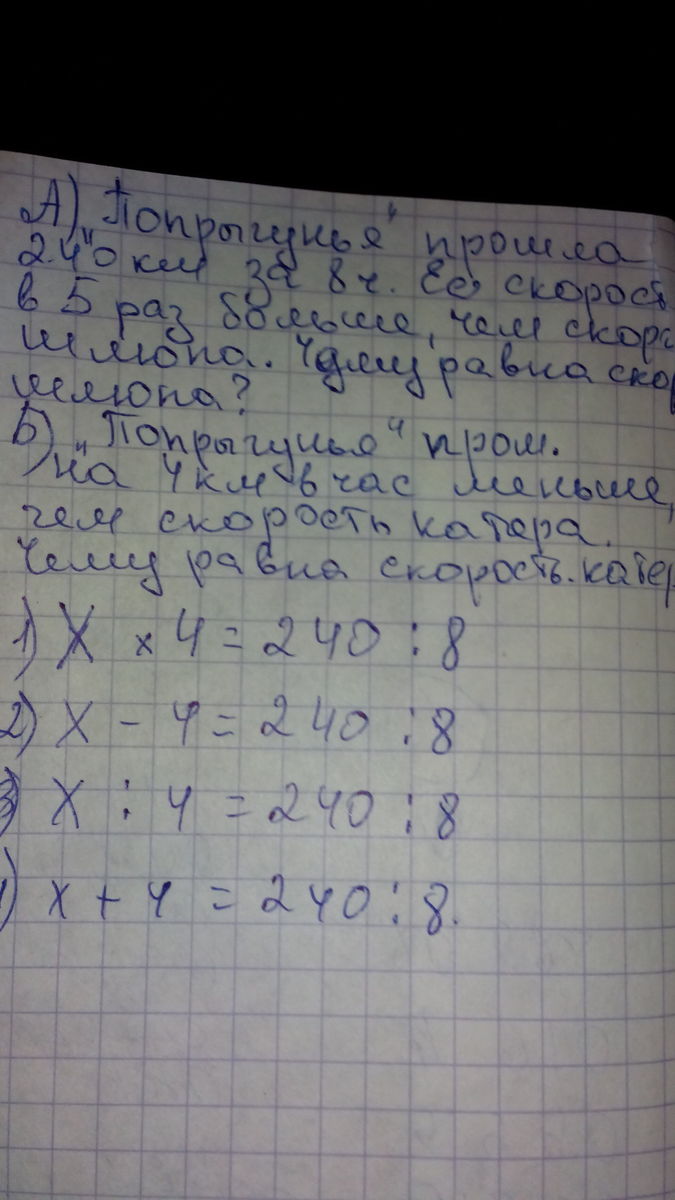 А) "Попрыгунья" прошла
240 км за 8 ч. Её скорост
в 5 раз больше, чем скоро
шлюпа. Чему равна скор
шлюпа?
Б) "Попрыгунья" прош.
на 4 км в час меньше,
чем скорость катера.
Чему равна скорость катер
1) X × 4 = 240 : 8
2) X - 4 = 240 : 8
3) X : 4 = 240 : 8
) x + 4 = 240 : 8.